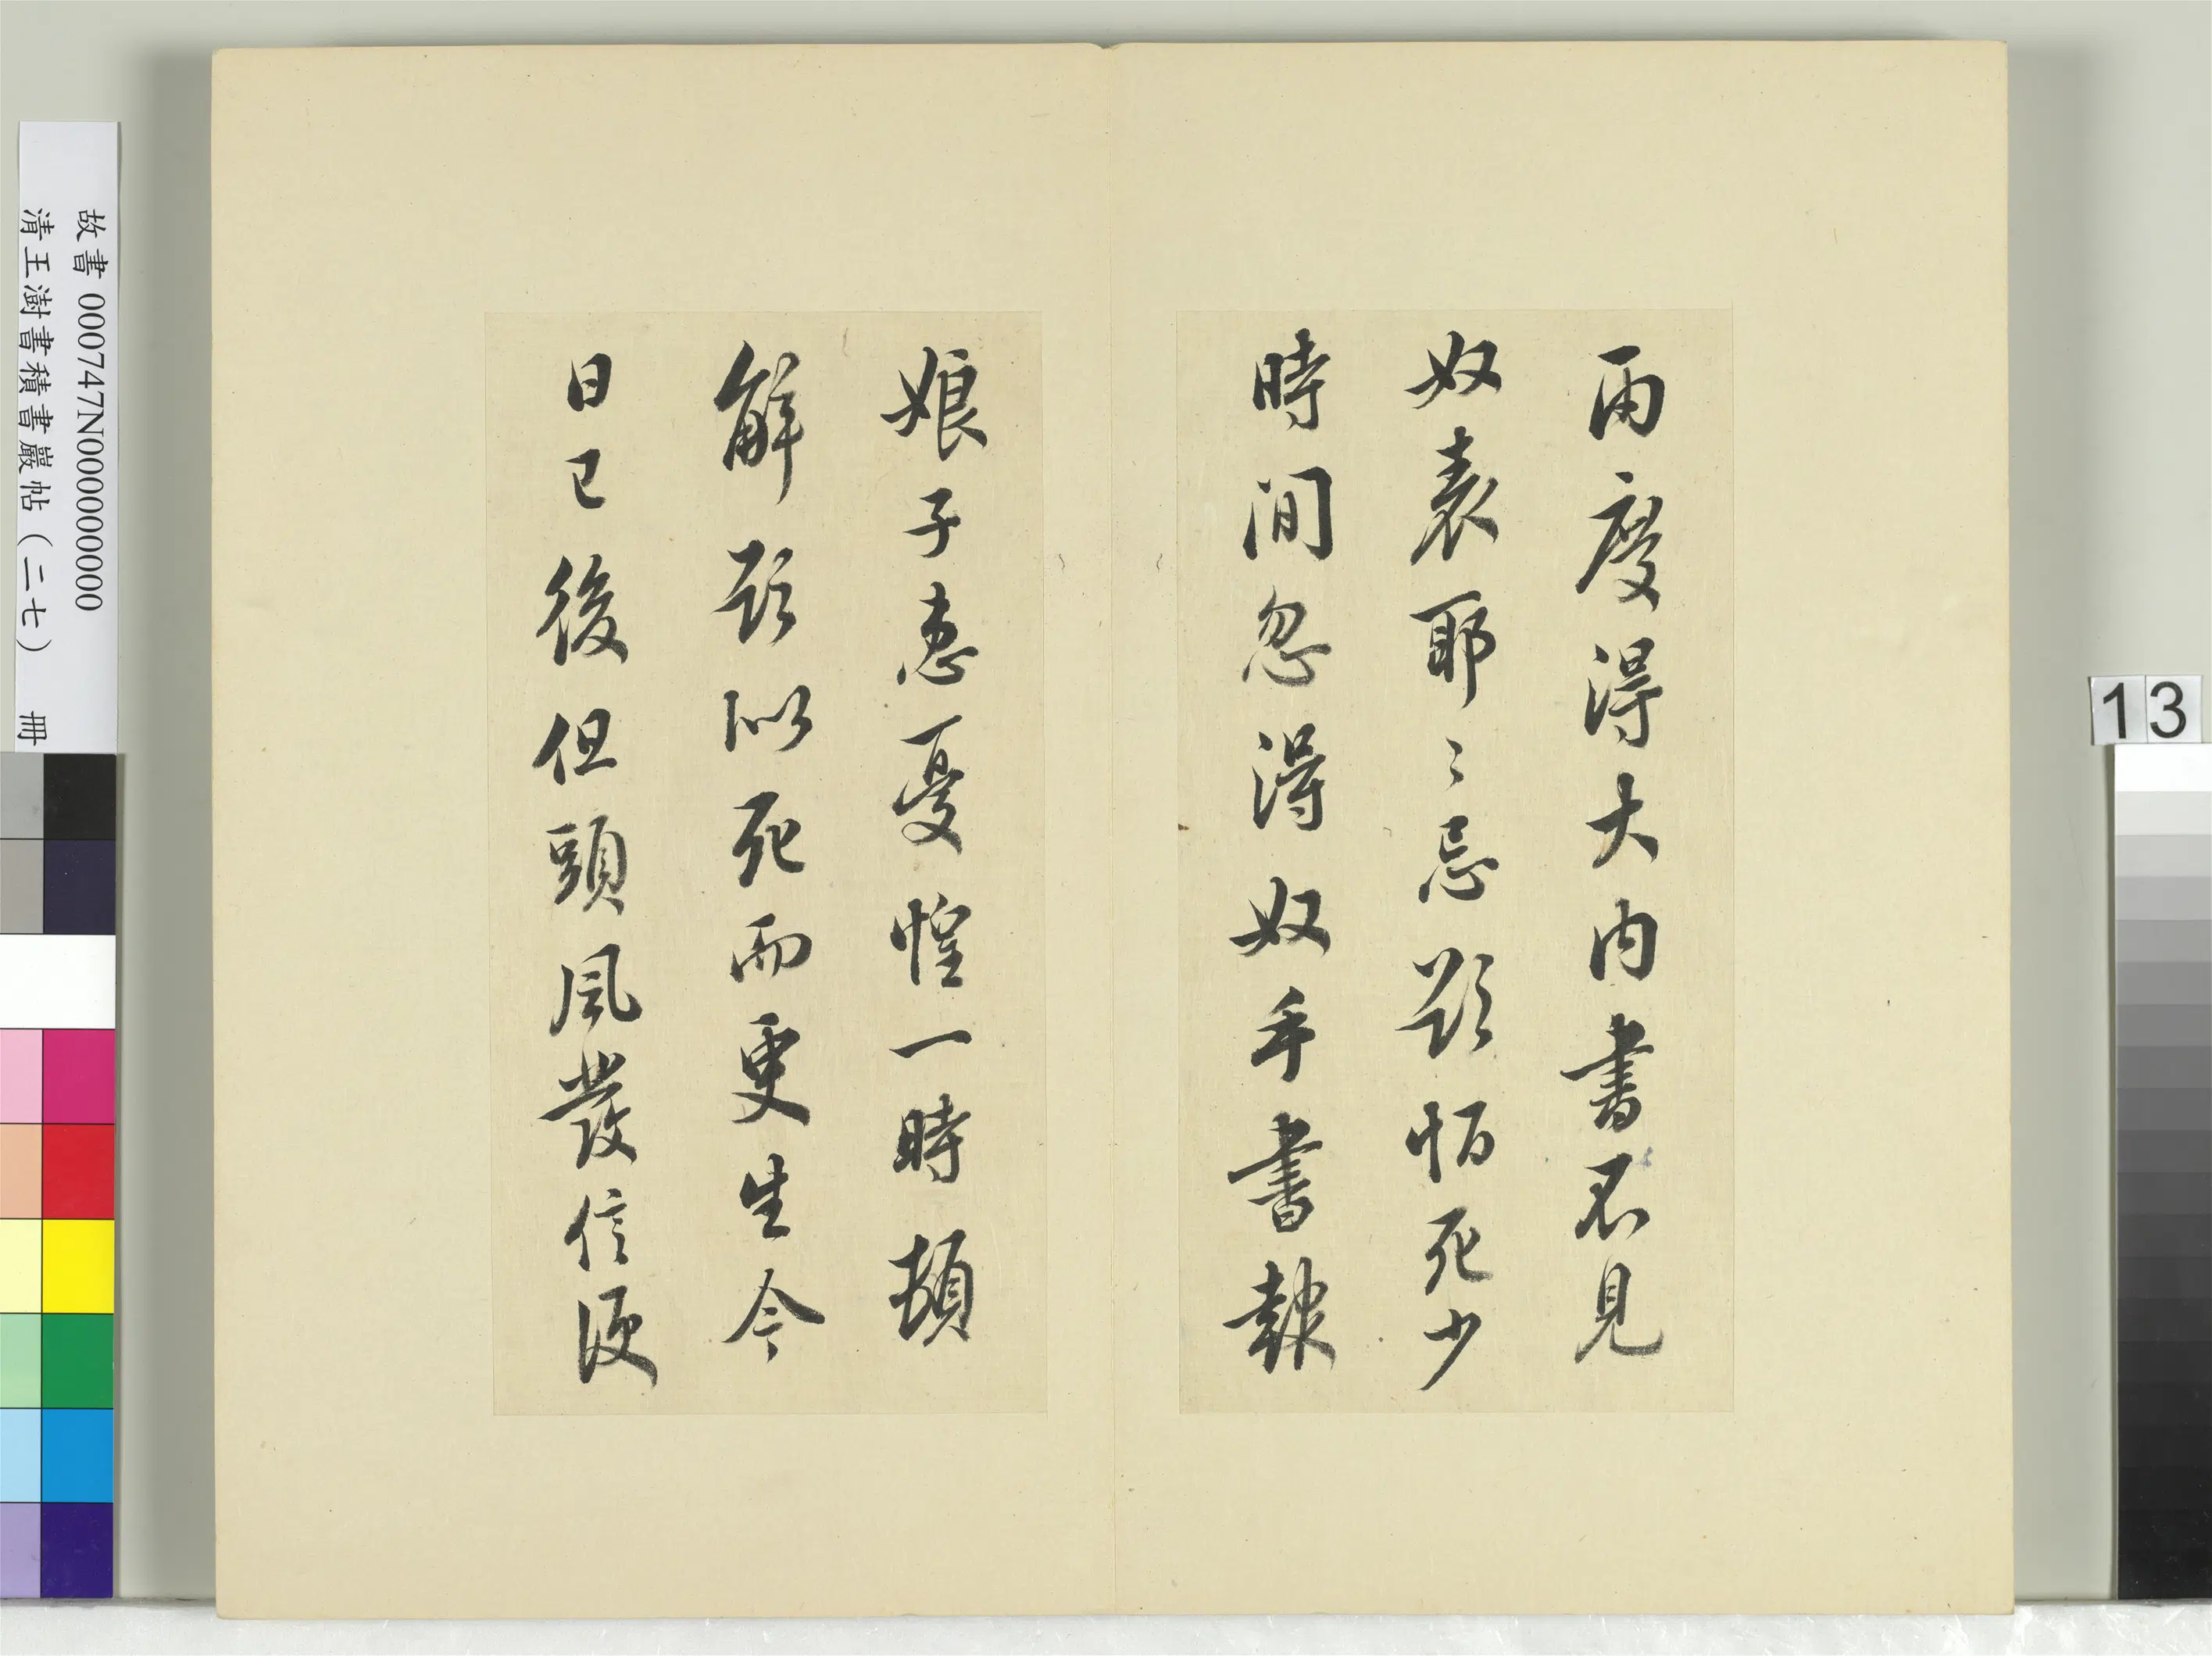 兩度得大内書不見
奴表耶〻忌欲恒死少
時間忽得奴手書報
娘子患憂惶一時頓
解欲似死而更生今
日已後但頭風發信便
故書 000747N000000000
清王澍書積書巖帖(二七) 冊
13